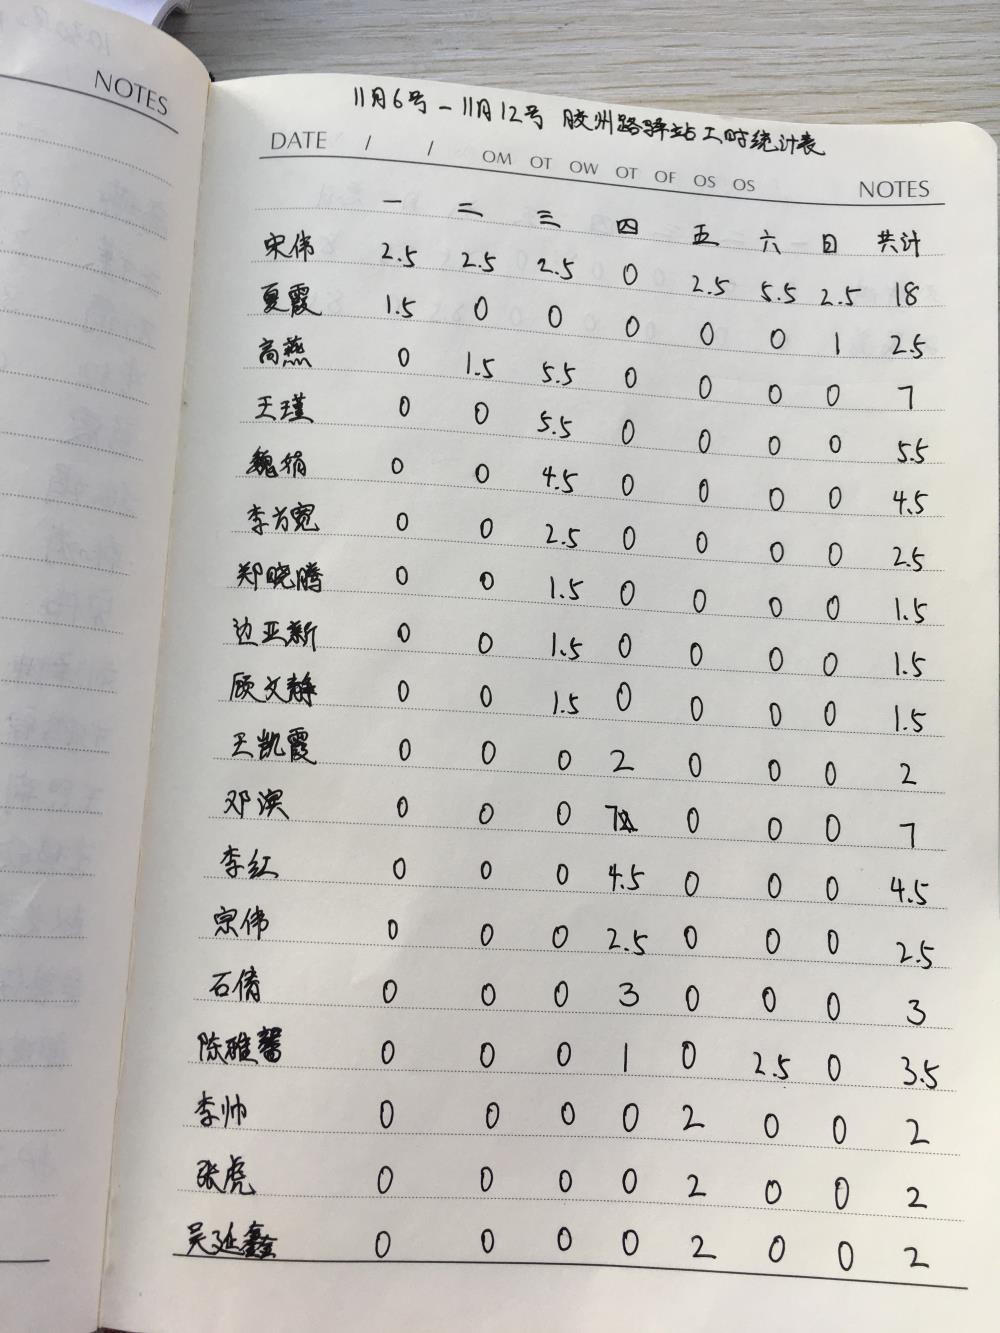 NOTES
11月6号-11月12号 胶州路驿站工时统计表
DATE / / OM OT OW OT OF OS OS NOTES
一 二 三 四 五 六 日 共计
宋伟 2.5 2.5 2.5 0 2.5 5.5 2.5 18
夏霞 1.5 0 0 0 0 0 1 2.5
高燕 0 1.5 5.5 0 0 0 0 7
王瑾 0 0 5.5 0 0 0 0 5.5
魏娟 0 0 4.5 0 0 0 0 4.5
李为宽 0 0 2.5 0 0 0 0 2.5
郑晓腾 0 0 1.5 0 0 0 0 1.5
边亚新 0 0 1.5 0 0 0 0 1.5
顾文静 0 0 1.5 0 0 0 0 1.5
王凯霞 0 0 0 2 0 0 0 2
邓滨 0 0 0 7 0 0 0 7
李红 0 0 0 4.5 0 0 0 4.5
宗伟 0 0 0 2.5 0 0 0 2.5
石倩 0 0 0 3 0 0 0 3
陈雅馨 0 0 0 1 0 2.5 0 3.5
李帅 0 0 0 0 2 0 0 2
张虎 0 0 0 0 2 0 0 2
吴延鑫 0 0 0 0 2 0 0 2